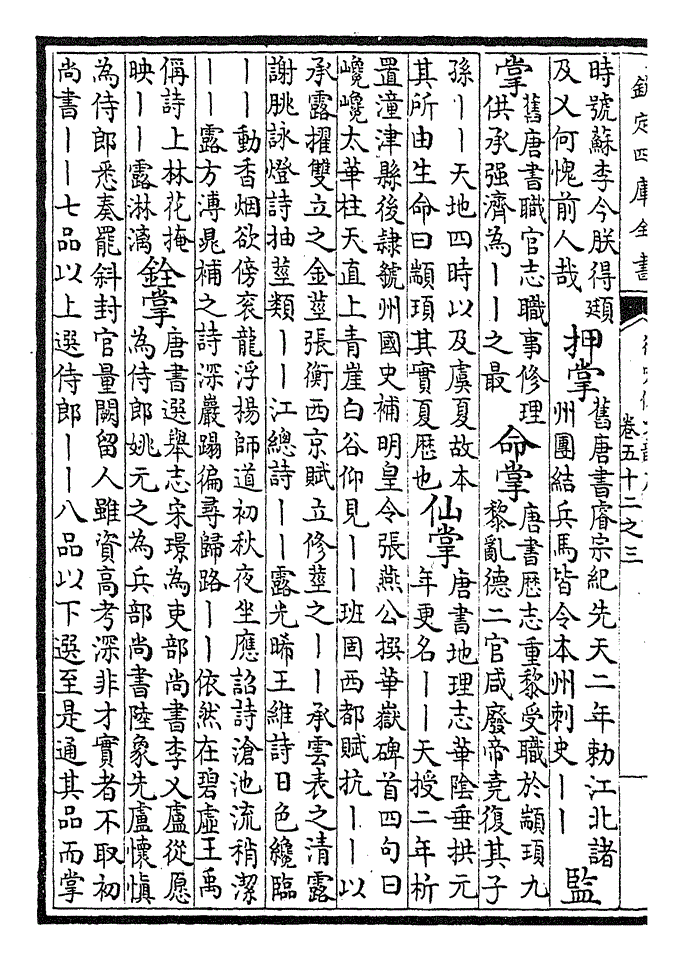 欽定四庫全書
卷五十二之三
時號蘇李今朕得頲
及乂何愧前人哉
押掌
舊唐書睿宗紀先天二年勅江北諸
州團結兵馬皆令本州刺史｜｜
監
掌
舊唐書職官志職事修理
供承强濟為｜｜之最
命掌
唐書歴志重黎受職於顓頊九
黎亂德二官咸廢帝堯復其子
孫｜｜天地四時以及虞夏故本
其所由生命曰顓頊其實夏歴也
仙掌
唐書地理志華陰垂拱元
年更名｜｜天授二年析
置潼津縣後隸虢州國史補明皇令張燕公撰華嶽碑首四句曰
巉巉太華柱天直上青崖白谷仰見｜｜班固西都賦抗｜｜以
承露擢雙立之金莖張衡西京賦立修莖之｜｜承雲表之清露
謝朓詠燈詩抽莖類｜｜江總詩｜｜露光晞王維詩日色纔臨
｜｜動香烟欲傍衮龍浮揚師道初秋夜坐應詔詩滄池流稍潔
｜｜露方溥晁補之詩深嚴蹋徧尋歸路｜｜依然在碧虛王禹
偁詩上林花掩
映｜｜露淋漓
銓掌
唐書選舉志宋璟為吏部尚書李乂盧從愿
為侍郎姚元之為兵部尚書陸象先盧懷慎
為侍郎悉奏罷斜封官量闕留人雖資高考深非才實者不取初
尚書｜｜七品以上選侍郎｜｜八品以下選至是通其品而掌